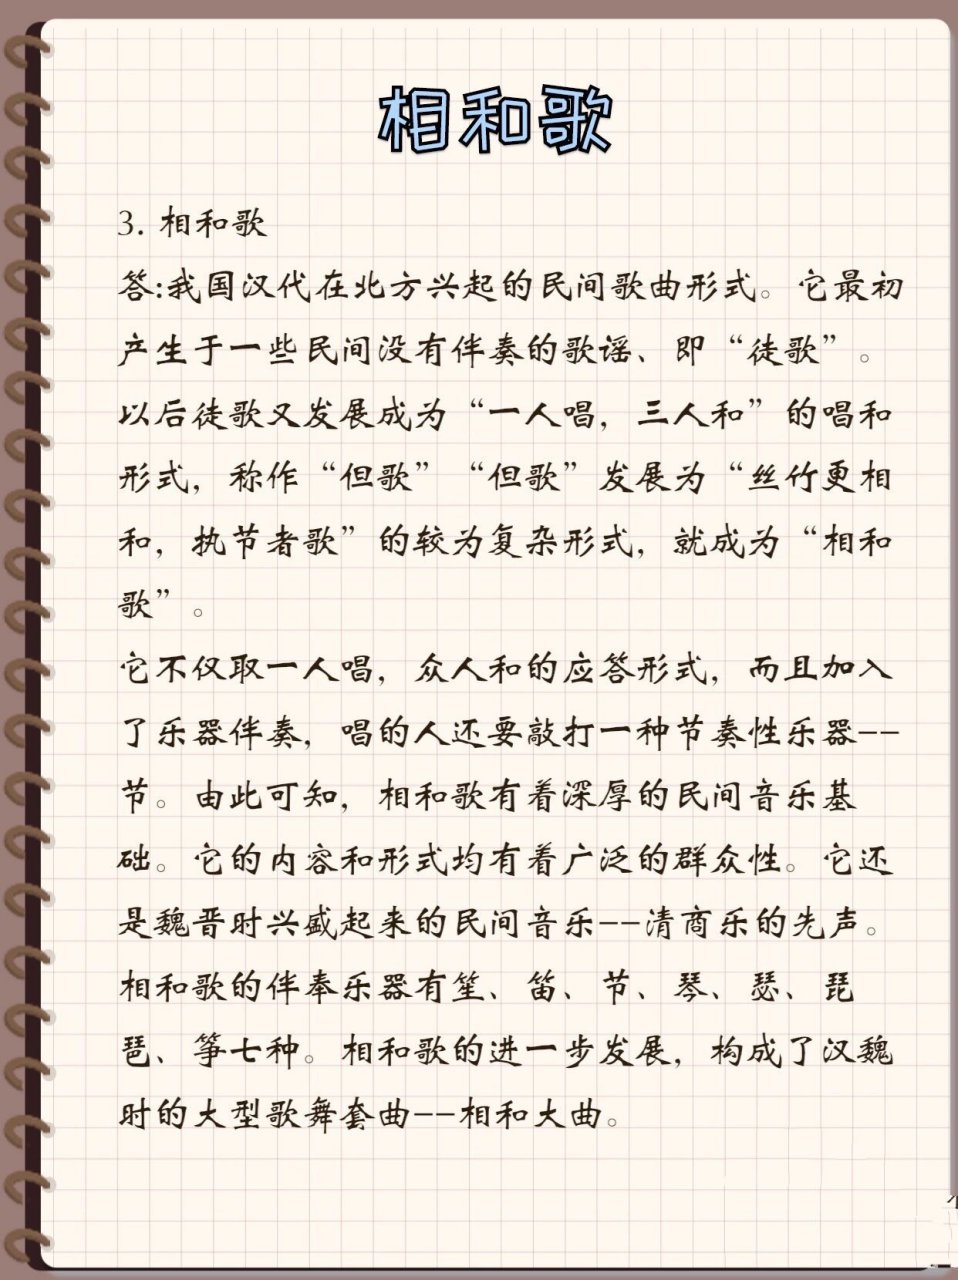 相和歌
3. 相和歌
答:我国汉代在北方兴起的民间歌曲形式。它最初
产生于一些民间没有伴奏的歌谣、即“徒歌”。
以后徒歌又发展成为“一人唱，三人和”的唱和
形式，称作“但歌”“但歌”发展为“丝竹更相
和，执节者歌”的较为复杂形式，就成为“相和
歌”。
它不仅取一人唱，众人和的应答形式，而且加入
了乐器伴奏，唱的人还要敲打一种节奏性乐器--
节。由此可知，相和歌有着深厚的民间音乐基
础。它的内容和形式均有着广泛的群众性。它还
是魏晋时兴盛起来的民间音乐--清商乐的先声。
相和歌的伴奉乐器有笙、笛、节、琴、瑟、琵
琶、筝七种。相和歌的进一步发展，构成了汉魏
时的大型歌舞套曲--相和大曲。